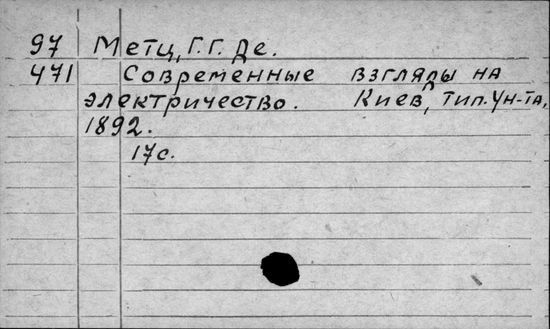 97 Метц, Г.Г. Де.
471 Современные взгляды на
электричество. Киев, тип. Ун-та,
1892.
17с.